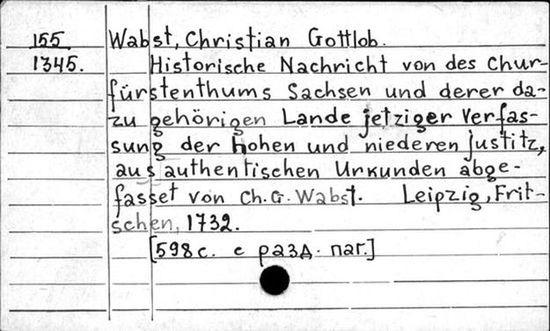 155 Wabst, Christian Gottlob.
1345. Historische Nachricht von des Chur-
fürstenthums Sachsen und derer da-
zu gehörigen Lande jetziger Verfas-
sung der hohen und niederen justitz,
aus authentischen Urkunden abge-
fasset von Ch. G. Wabst. Leipzig, Frit-
schen, 1732.
[598 с. с разд. паг.]